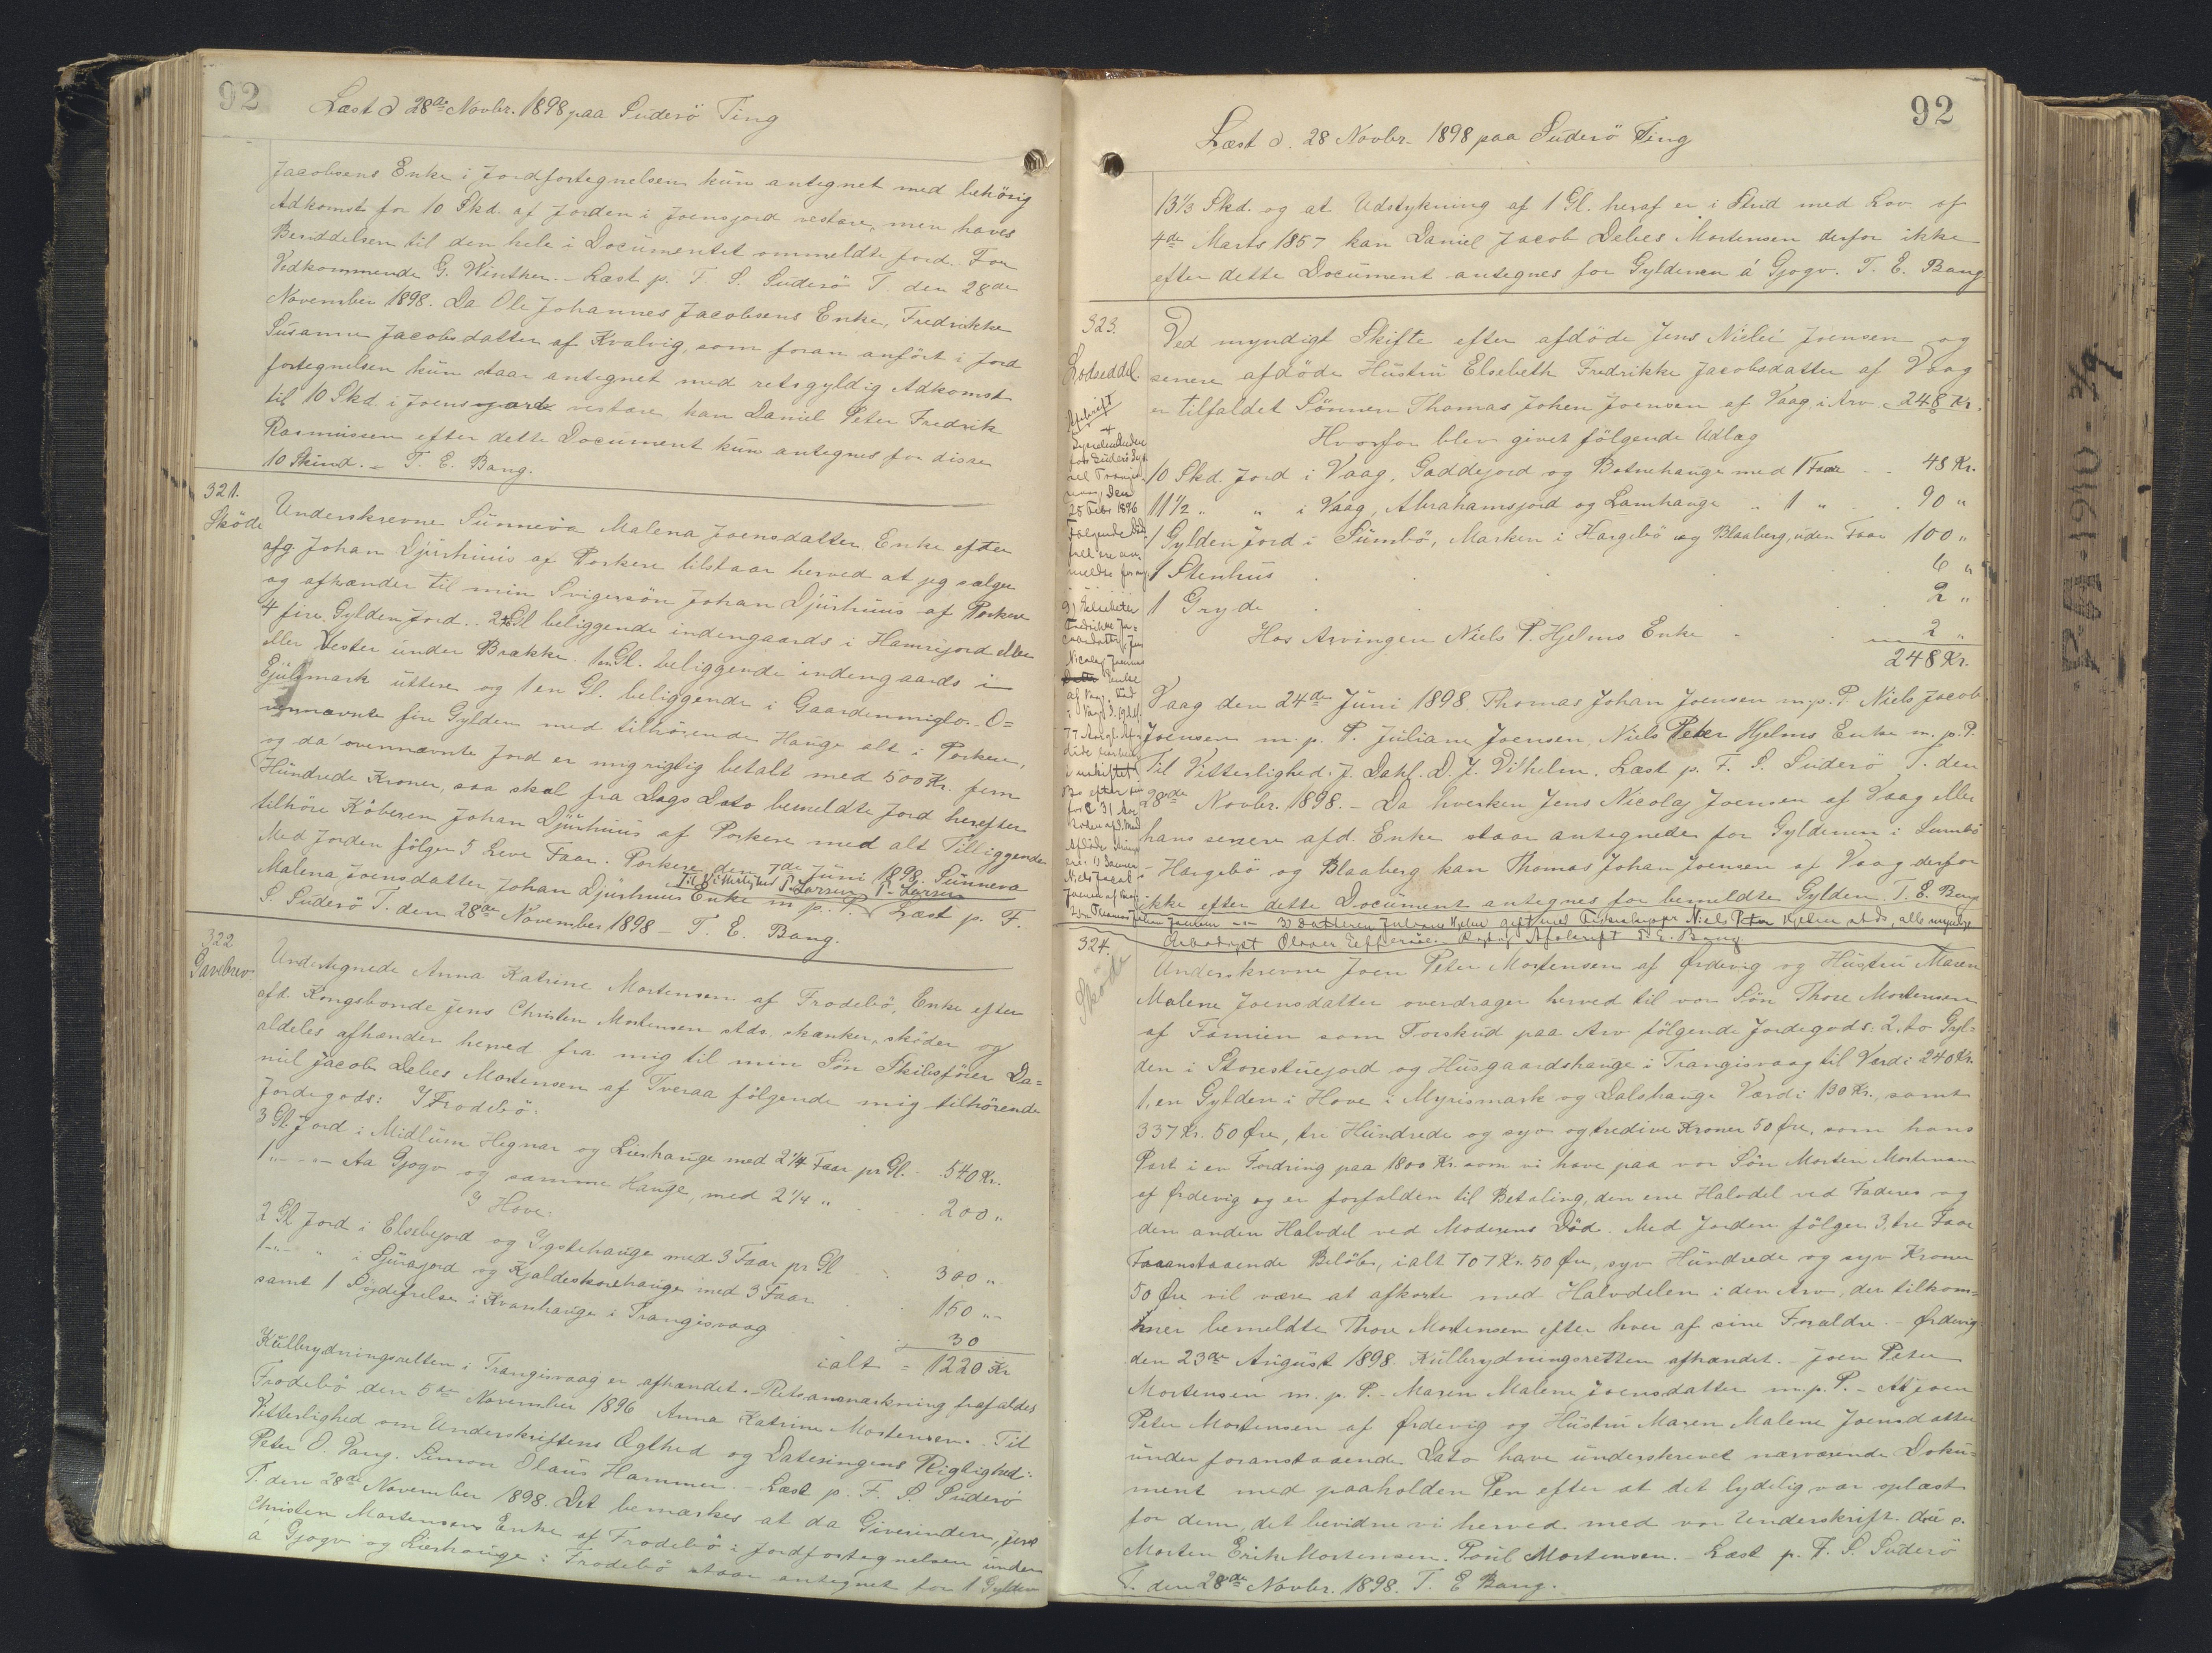 92
Læst d 28de Novbr. 1898 paa Suderö Ting
Jacobsens Enke i Jordfortegnelsen kun antegnet med behörig
Adkomst for 10 Skd. af Jorden i Joensjord vestare, men haves
Besiddelsen til den hele i Documentet ommeldte Jord. For
Vedkommende G. Winther. - Læst p. F. S. Suderö T. den 28de
November 1898. Da Ole Johannes Jacobsens Enke, Fredrikke
Susanne Jacobsdatter af Kvalvig, som foran anfört i Jord
fortegnelsen kun staar antegnet med retsgyldig Adkomst
til 10 Skd. i Joensjord vestare, kan Daniel Peter Fredrik
Rasmussen efter dette Document kun antegnes for disse
10 Skind. - T. E. Bang.
321.
Sköde
Underskrevne Sunneva Malena Joensdatter Enke efter
afg. Johan Djurhuus af Porkere tilstaar herved at jeg sælger
og afhænder til min Svigersön Johan Djurhuus af Porkere
4 fire Gylden Jord. 2 to Gl beliggende indengaards i Hamrejord eller
eller Vester under Brække. 1 en Gl. beliggende indengaards i
Gjülemark uttere og 1 en Gl. beliggende i Gaardenmiglo. O=
vennævnte fire Gylden med tilhörende Hauge alt i Porkere,
og da ovennævnte Jord er mig rigtig betalt med 500 Kr. fem
Hundrede Kroner, saa skal fra Dags Dato bemeldte Jord herefter
tilhöre Köberen Johan Djurhuus af Porkere med alt Tilliggende
Med Jorden fölger 5 Leve Faar. Porkere den 7de Juni 1898. Sunneva
Til Vitterlighed P. Larsen P. Larsen
Malena Joensdatter, Johan Djurhuus Enke m. p. P. Læst p. F.
S. Suderö T. den 28de November 1898 - T. E. Bang.
322
Gavebrev
Undertegnede Anna Katrine Mortensen af Frodebö, Enke efter
afd. Kongsbonde Jens Christen Mortensen stds. skænker, sköder og
aldeles afhænder herved fra mig til min Sön Skibsförer Da=
niel Jacob Debes Mortensen af Tveraa fölgende mig tilhörende
Jordegods: I Frodebö:
3 Gl. Jord i Midlum Hegnar og Lierhauge med 2 1/4 Faar pr Gl. - 540 Kr.
1 " - " - Aa Gjogv og samme Hauge, med 2 1/4 " . . 200 "
I Hove:
2 Gl. Jord i Elsebejord og Ygstehauge med 3 Faar pr Gl . 300 "
1 - " - " i Gjurajord og Kjaldeskorehauge med 3 Faar . . 150 "
samt 1 Sydefrelse i Kvanhauge i Trangisvaag . . 30
ialt = 1220 Kr
Kulbrydningsretten i Trangisvaag er afhændet. - Retsanmærkning frafaldes
Frodebö den 5te November 1896 Anna Katrine Mortensen. Til
Vitterlighed om Underskriftens Ægthed og Dateringens Rigtighed:
Peter O. Vang. Simon Olaus Hammer. - Læst p. F. S. Suderö
T. den 28de November 1898. Det bemærkes at da Giverinden, Jens
Christen Mortensens Enke af Frodebö i Jordfortegnelsen under
á Gjogv og Lierhauge i Frodebö staar antegnet for 1 Gylden
92
Læst d. 28 Novbr. 1898 paa Suderö Ting
13 1/3 Skd. og at Udstykning af 1 Gl. heraf er i Strid med Lov af
4de Marts 1857 kan Daniel Jacob Debes Mortensen derfor ikke
efter dette Document antegnes for Gyldenen á Gjogv. T. E. Bang
323.
Lodseddel.
Ved myndigt Skifte efter afdöde Jens Nicolei Joensen og
senere afdöde Hustru Elsebeth Fredrikke Jacobsdatter af Vaag
er tilfaldet Sönnen Thomas Johan Joensen af Vaag i Arv 248 Kr.
Hvorfor blev givet fölgende Udlæg
10 Skd. Jord i Vaag, Gaddejord og Botnehauge med 1 Faar - - 48 Kr.
11 1/2 " " i Vaag, Abrahamsjord og Lamhauge " 1 " . . 90 "
1 Gylden Jord i Sumbö, Marken i Hargebö og Blaaberg, uden Faar 100 "
1 Stenhus . . . . 6 "
1 Gryde . . . . 2 "
Hos Arvingen Niels P. Hjelms Enke . . 2 "
248 Kr.
Afskrift
25 Febr 1896
Nicolaj Joensens
Enke
af Vaag
Vaag den 24de Juni 1898. Thomas Johan Joensen m. p. P. Niels Jacob
Joensen m. p. P. Juliane Joensen, Niels Peter Hjelms Enke m. p. P.
Til Vitterlighed. J. Dahl. D. J. Vilhelm. Læst p. F. S. Suderö T. den
28de Novbr. 1898. - Da hverken Jens Nicolaj Joensen af Vaag eller
hans senere afd. Enke staar antegnede for Gyldenen i Sumbö
- Hargebö og Blaaberg kan Thomas Johan Joensen af Vaag derfor
ikke efter dette Document antegnes for bemeldte Gylden. T. E. Bang
Sön Thomas Johan Joensen - " - 3) Datteren Juliane Hjelm gift med Niels Peter Hjelm stds, alle myndige
Rigtig Afskrift T. E. Bang
324.
Sköde
Underskrevne Joen Peter Mortensen af Ørdevig og Hustru Maren
Malene Joensdatter overdrager herved til vor Sön Thore Mortensen
af Famien som Forskud paa Arv fölgende Jordegods: 2, to Gyl=
den i Storestuejord og Husgaardshauge i Trangisvaag til Værdi 240 Kr.
1, en Gylden i Hove i Myrismark og Dalshauge Værdi 130 Kr., samt
337 Kr. 50 Øre, tre Hundrede og syv og tredive Kroner 50 Øre, som hans
Part i en Fordring paa 1800 Kr. som vi have paa vor Sön Morten Mortensen
af Ørdevig og er forfalden til Betaling, den ene Halvdel ved Faderens og
den anden Halvdel ved Moderens Död. Med Jorden fölger 3, tre Faar
Foranstaaende Belöb, ialt 707 Kr. 50 Øre, syv Hundrede og syv Kroner
50 Øre vil være at afkorte med Halvdelen i den Arv, der tilkom=
mer bemeldte Thore Mortensen efter hver af sine Forældre. - Ørdevig
den 23de August 1898. Kulbrydningsretten afhændet. - Joen Peter
Mortensen m. p. P. - Maren Malene Joensdatter m. p. P. - At Joen
Peter Mortensen af Ørdevig og Hustru Maren Malene Joensdatter
under foranstaaende Dato have underskrevet nærværende Doku=
ment med paaholden Pen efter at det lydelig var oplæst
for dem, det bevidne vi herved med vor Underskrift. d. u. s.
Morten Erik Mortensen. Poul Mortensen. - Læst p. F. S. Suderö
T. den 28de Novbr. 1898. T. E Bang.